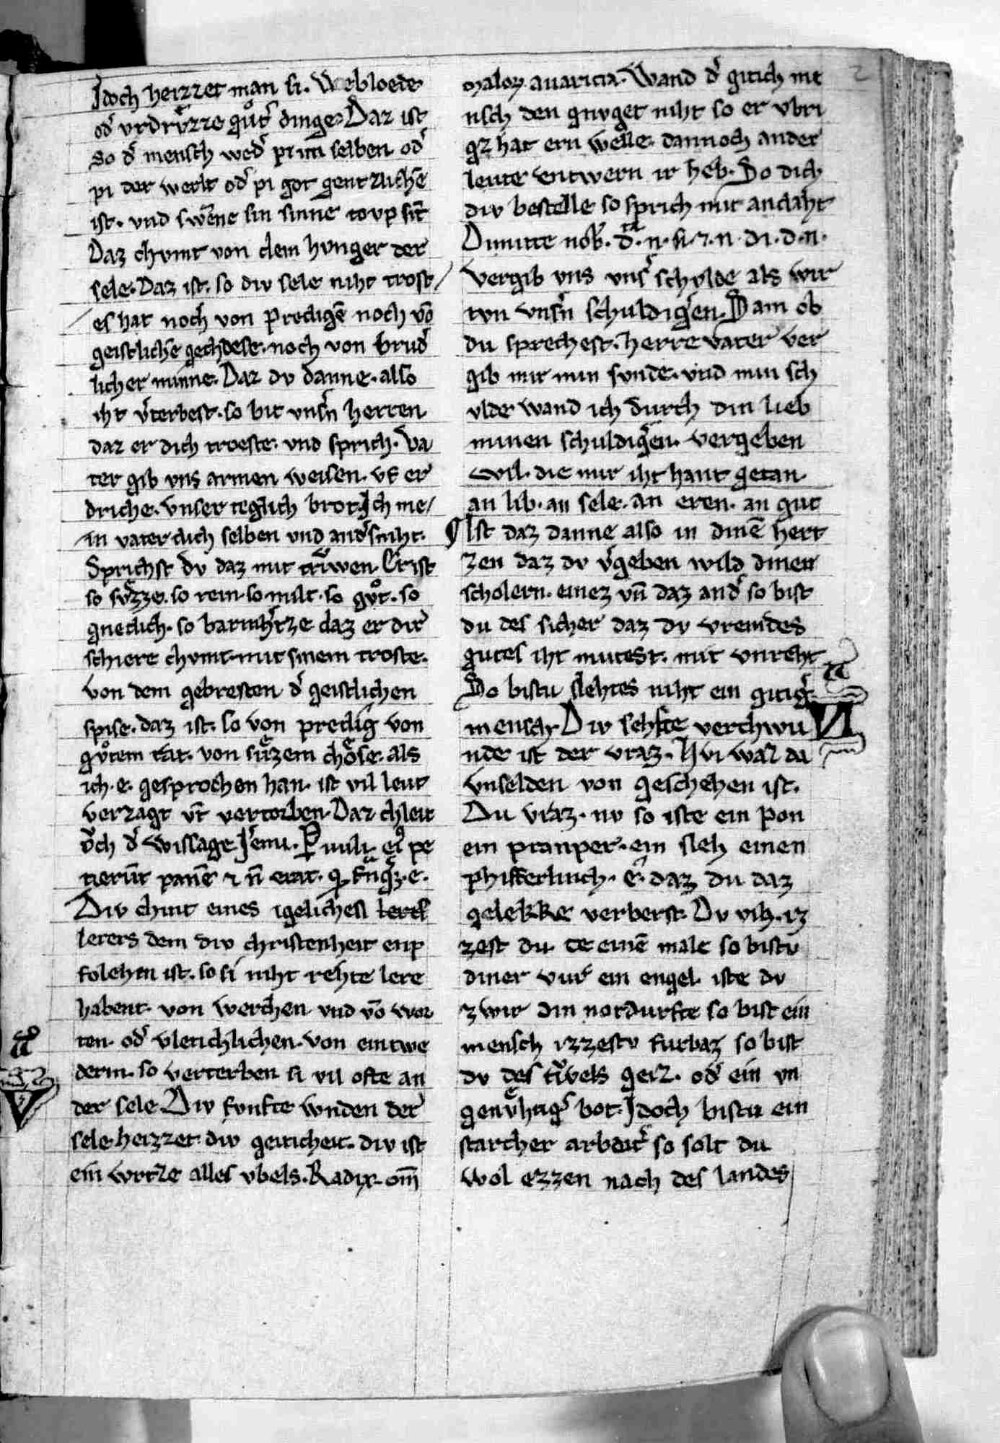 Jdoch heizzet man si. Webloede
od̓ vrdrvͤzze gůt̓ dinge. Daz ist
So d̓ mensch wed̓ pi im selben od̓
pi der werlt od̓ pi got gentzliche
ist. vnd swenne sin sinne
Daz chvmt von dem hvnger der
sele. Daz ist. so div sele niht trost
es hat noch von predigē noch vō
geistliche gechoese. noch von brud̓
licher minne. Daz dv danne. also
iht v̓terbest. so bit vnsn̓ herren
daz er dich troeste. vnd sprich. Va
ter gib vns armen weisen. vf er
driche. vnser teglich brot. Jch me
in vater dich selben vnd and̓s niht.
Sprichst dv daz mit triwen. Crist
so svͤzze. so rein. so milt. so gůt. so
gnedich. so barmh̓tze daz er dir
schiere chvmt. mit sinem troste.
Von dem gebresten d̓ geistlichen
spise. daz ist. so von predig von
gůtem rat. von suͤzem choͤse. als
ich. e. gesprochen han. ist vil leut
verzagt vn̄ vertorben. Daz chleit
och d̓ wissage Jeremi. Paruuli ei⁹ pe
tierūt panē ⁊ n̄ erat. q̇ frāg̅. e.
Div chint eines igeliches
lerers dem div christenheit enp
folchen ist. so si niht rehte lere
habent. von werchen. vnd vō wor
ten. od̓ vletichlichen. von eintwe
derm. so verterben si vil ofte an
der sele. Div fvnfte wnden der
sele heizzet. div geiticheit. div ist
ein wrtze alles vbels. Radix. om̄
malorꝝ auaricia. Wand d̓ gitich me
nsch den gnvget niht so er vbri
gz hat ern welle. dannoch ander
leute entwern ir heb. So dich
div bestelle so sprich mit andaht
Dimitte nob̓. d. n. si. ⁊. n. di. d. n.
Vergib vns vns̓ schvlde als wir
tvn vnsn̓ schuldigen̓. Dam ob
du sprechest. herre vater ver
gib mir min sunde. vnd min sch
ulde wand ich durch din lieb
minen schuldigen̓. vergeben
wil. die mir iht hant getan.
an lib. an sele. an eren. an gut
¶ Ist daz danne also in dinē hert
zen daz dv v̓geben wild dinen
scholern. einez vn̄ daz and̓ so bist
du des sicher daz dv vremdes
gutes iht mutest. mit vnreht
So bistu slehtes niht ein gitig̓
mensch. Div sehste verchwu
nde ist der vraz. Hvi waz da
vnselden von geschehen ist.
Du vraz. nv so iste ein pon
ein pranper. ein sleh einen
phifferlinch. e. daz du daz
gelekke verberst. Dv vih. iz
zest du. ce einē male so bistv
diner vur̓ ein engel. iste dv
zwir din notdurfte so bist ein
mensch izzestv furbaz so bist
dv des tivels geiz. od̓ ein vn
genvͤhtig̓ bot. Jdoch bistu ein
starcher arbeit̓ so solt du
wol ezzen nach des landes
2